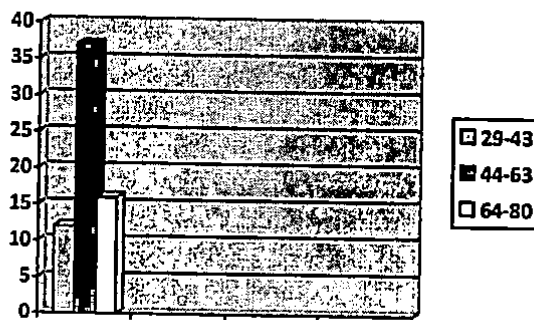 40
35
30
25
20
15
10
5
0
29-43
44-63
64-80